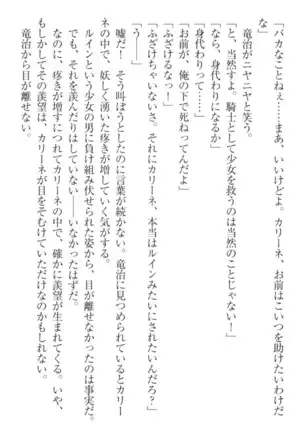 「バカなことねぇ……まあ、いいけどよ。カリーネ、お前はこいつを助けたいわけだ
な」
　竜治がニヤニヤと笑う。
「と、当然すよ。騎士として少女を救うのは当然のことじゃない！」
「なら、身代わりになるか」
「身代わりって……」
「お前が、俺の下で死ねってんだよ」
「ふざけるなっ！」
「ふざけちゃいないさ。それにカリーネ、本当はルインみたいにされたいんだろ？」
「う――」
　嘘だ！　そう叫ぼうとしたのに言葉が続かない。竜治に見つめられているとカリー
ネの中で、妖しく湧いた疼きが増していく気がする。
　ルインという少女の男に負け組み伏せられた姿から、目が離せなかったのは事実だ。
　でも、それを羨んだりはしていない――いなかったはずだ。
　なのに、疼きが増すにつれてカリーネの中で、確かに羨望が生まれてくる。いや、
もしかしてその羨望は、カリーネが目をそむけていただけなのかもしれない。
　竜治から目を離せない。